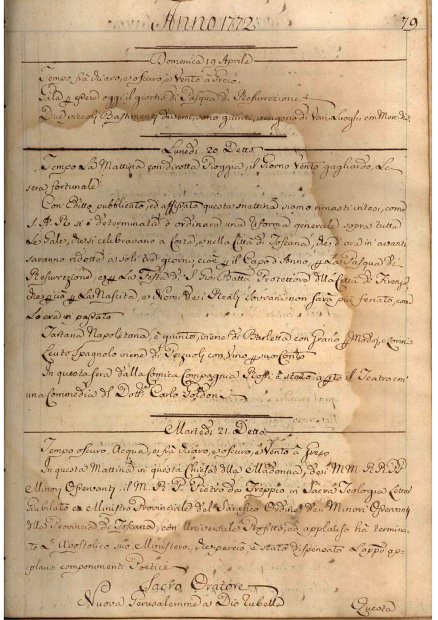 Anno 1772
79
Domenica 19 Aprile
Tempo frà chiaro, e oscuro, e Vento à Greco.
Gala p esserd oggi il giorno di Pasqua di Resurrezione
Due piccoli Bastimenti diversi, sono giunti, e vengono di Vari Luoghi con Merc.
Lunedì 20 Detto
Tempo La Mattina con dirotta Pioggia, il Giorno Vento gagliardo, La
sera fortunale
Con Editto pubblicato, ed affissato questa mattina siamo rimasti intesi, come
S. A. R. si è determinata d ordinare una Riforma generale sopra tutte
Le Gale, che si celebravano a Corte, e nella Città di Toscana, che d ora in avanti
saranno ridotte a soli tre giorni, cioè p il Capo d Anno, p La Pasqua di
Resurrezione, e p La Festa di S. Gio: Batta Protettore della Città di Firenze,
che p La Nascita, e Nomi dei Reali Sovrani non sarà più feriato, come
Lo era in passato
Tartana Napoletana, è giunto, viene di Barletta con Grano p
Leuto Spagnolo viene di con Vino p suo Conto
In questa sera dalla Comica Compagnia Rossi è stato aperto il Teatro con
una Commedia del Dott. Carlo Goldoni
Martedì 21 Detto
Tempo oscuro, Acqua, e frà chiaro, e oscuro, e Vento à Greco
In questa Mattina in questa Chiesa della Madonna, dei MM. RR. PP.
Minori Osservanti, il M. R. P. Pietro da Treppio in Sacra Teologia Lettor
Giubilato ex Ministro Provinciale del Serafico Ordine dei Minori Osservanti
della Provincia di Toscana, con Universale Rispetto, ed applauso hà termina-
to L Apostolico suo Ministero, che perciò è stato dispensato L appo
plauso componimenti Poetici
Sacro Oratore
Nuova Gerusalemme a Dio rubella
Questa